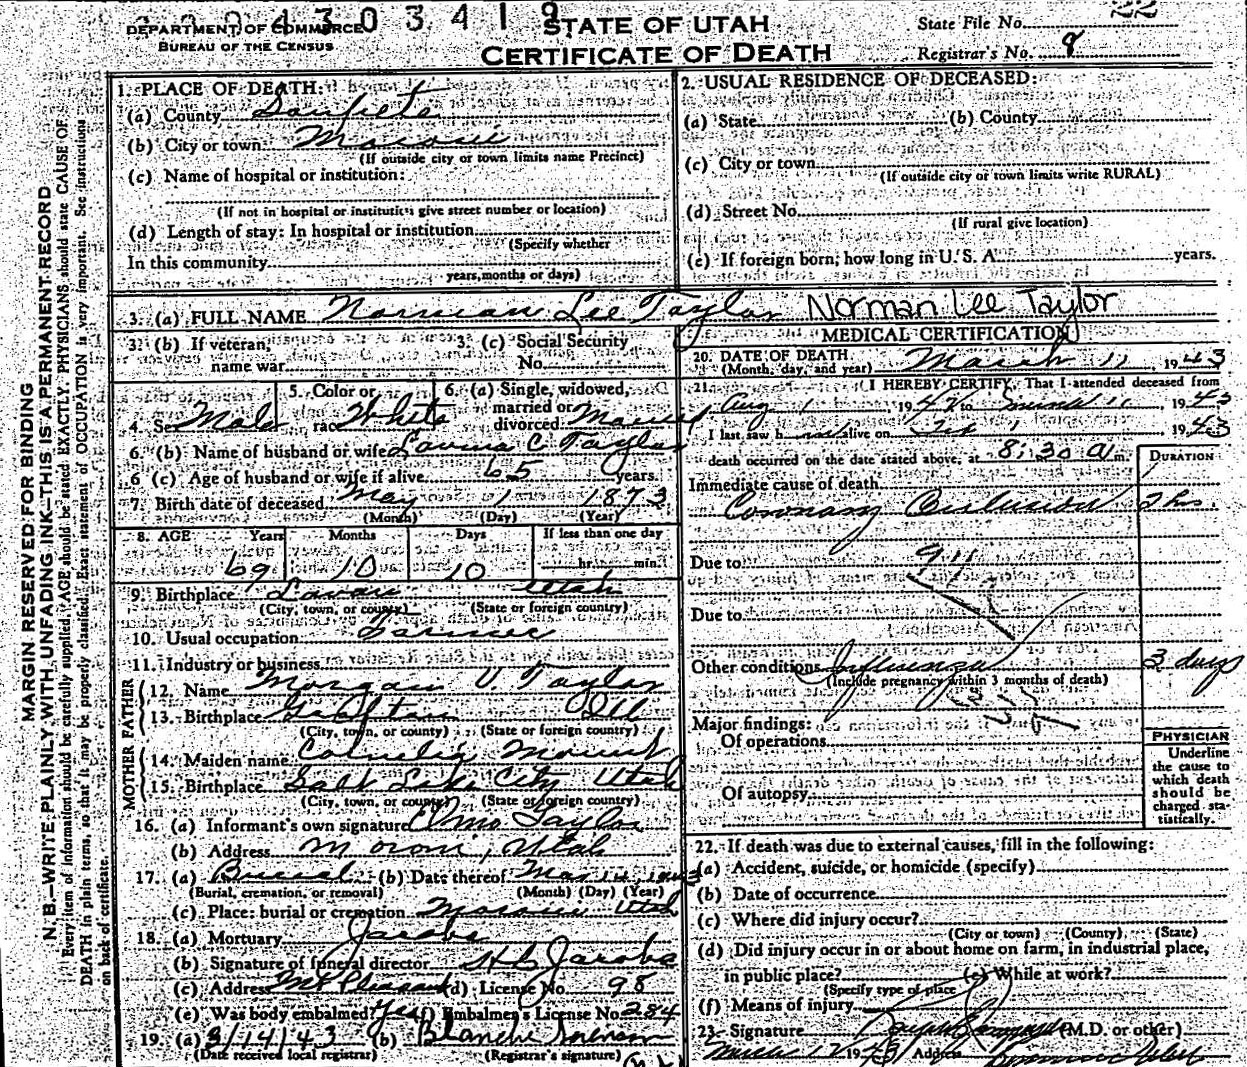 4 3 0 3 4 1 9
DEPARTMENT OF COMMERCE
BUREAU OF THE CENSUS
STATE OF UTAH
CERTIFICATE OF DEATH
State File No. 22
Registrar's No. 8
MARGIN RESERVED FOR BINDING
N. B.—WRITE PLAINLY, WITH UNFADING INK—THIS IS A PERMANENT RECORD
Every item of information should be carefully supplied. AGE should be stated EXACTLY. PHYSICIANS should state CAUSE OF
DEATH in plain terms, so that it may be properly classified. Exact statement of OCCUPATION is very important. See instructions
on back of certificate.
1. PLACE OF DEATH:
(a) County Sanpete
(b) City or town Moroni
(If outside city or town limits name Precinct)
(c) Name of hospital or institution:
(If not in hospital or institution give street number or location)
(d) Length of stay: In hospital or institution
(Specify whether
In this community
years, months or days)
2. USUAL RESIDENCE OF DECEASED:
(a) State (b) County
(c) City or town
(If outside city or town limits write RURAL)
(d) Street No.
(If rural give location)
(e) If foreign born, how long in U. S. A. years.
3. (a) FULL NAME Norman Lee Taylor Norman Lee Taylor
3. (b) If veteran, name war 3. (c) Social Security No.
4. Sex Male 5. Color or race White 6. (a) Single, widowed, married or divorced Married
6. (b) Name of husband or wife C Taylor
6 (c) Age of husband or wife if alive 65 years.
7. Birth date of deceased May 1 1873
(Month) (Day) (Year)
8. AGE Years Months Days If less than one day
69 10 10 hr. min.
9. Birthplace Levan Utah
(City, town, or county) (State or foreign country)
10. Usual occupation Farmer
11. Industry or business
FATHER
12. Name Morgan V Taylor
13. Birthplace Ill
(City, town, or county) (State or foreign country)
MOTHER
14. Maiden name Cornelia
15. Birthplace Salt Lake City Utah
(City, town, or county) (State or foreign country)
16. (a) Informant's own signature Elmo Taylor
(b) Address Moroni, Utah
17. (a) Burial (b) Date thereof Mar 14, 1943
(Burial, cremation, or removal) (Month) (Day) (Year)
(c) Place: burial or cremation Moroni Utah
18. (a) Mortuary Jacobs
(b) Signature of funeral director Jacobs
(c) Address Mt Pleasant (d) License No. 98
(e) Was body embalmed? Yes (f) Embalmer's License No. 284
19. (a) 3/14/43 (b) Blanche Sorenson
(Date received local registrar) (Registrar's signature)
MEDICAL CERTIFICATION
20. DATE OF DEATH March 11, 1943
(Month, day, and year)
21. I HEREBY CERTIFY, That I attended deceased from
Aug 1, 1942 to March 11, 1943
I last saw h alive on Feb 1, 1943
death occurred on the date stated above, at 8:30 a m.
DURATION
Immediate cause of death
Coronary Occlusion 2 hrs.
Due to
Due to
Other conditions Influenza 3 days
(Include pregnancy within 3 months of death)
Major findings:
Of operations
Of autopsy
PHYSICIAN
Underline
the cause to
which death
should be
charged sta-
tistically.
22. If death was due to external causes, fill in the following:
(a) Accident, suicide, or homicide (specify)
(b) Date of occurrence
(c) Where did injury occur?
(City or town) (County) (State)
(d) Did injury occur in or about home on farm, in industrial place,
in public place? (e) While at work?
(Specify type of place
(f) Means of injury
23. Signature (M.D. or other)
March 12 1943 Address